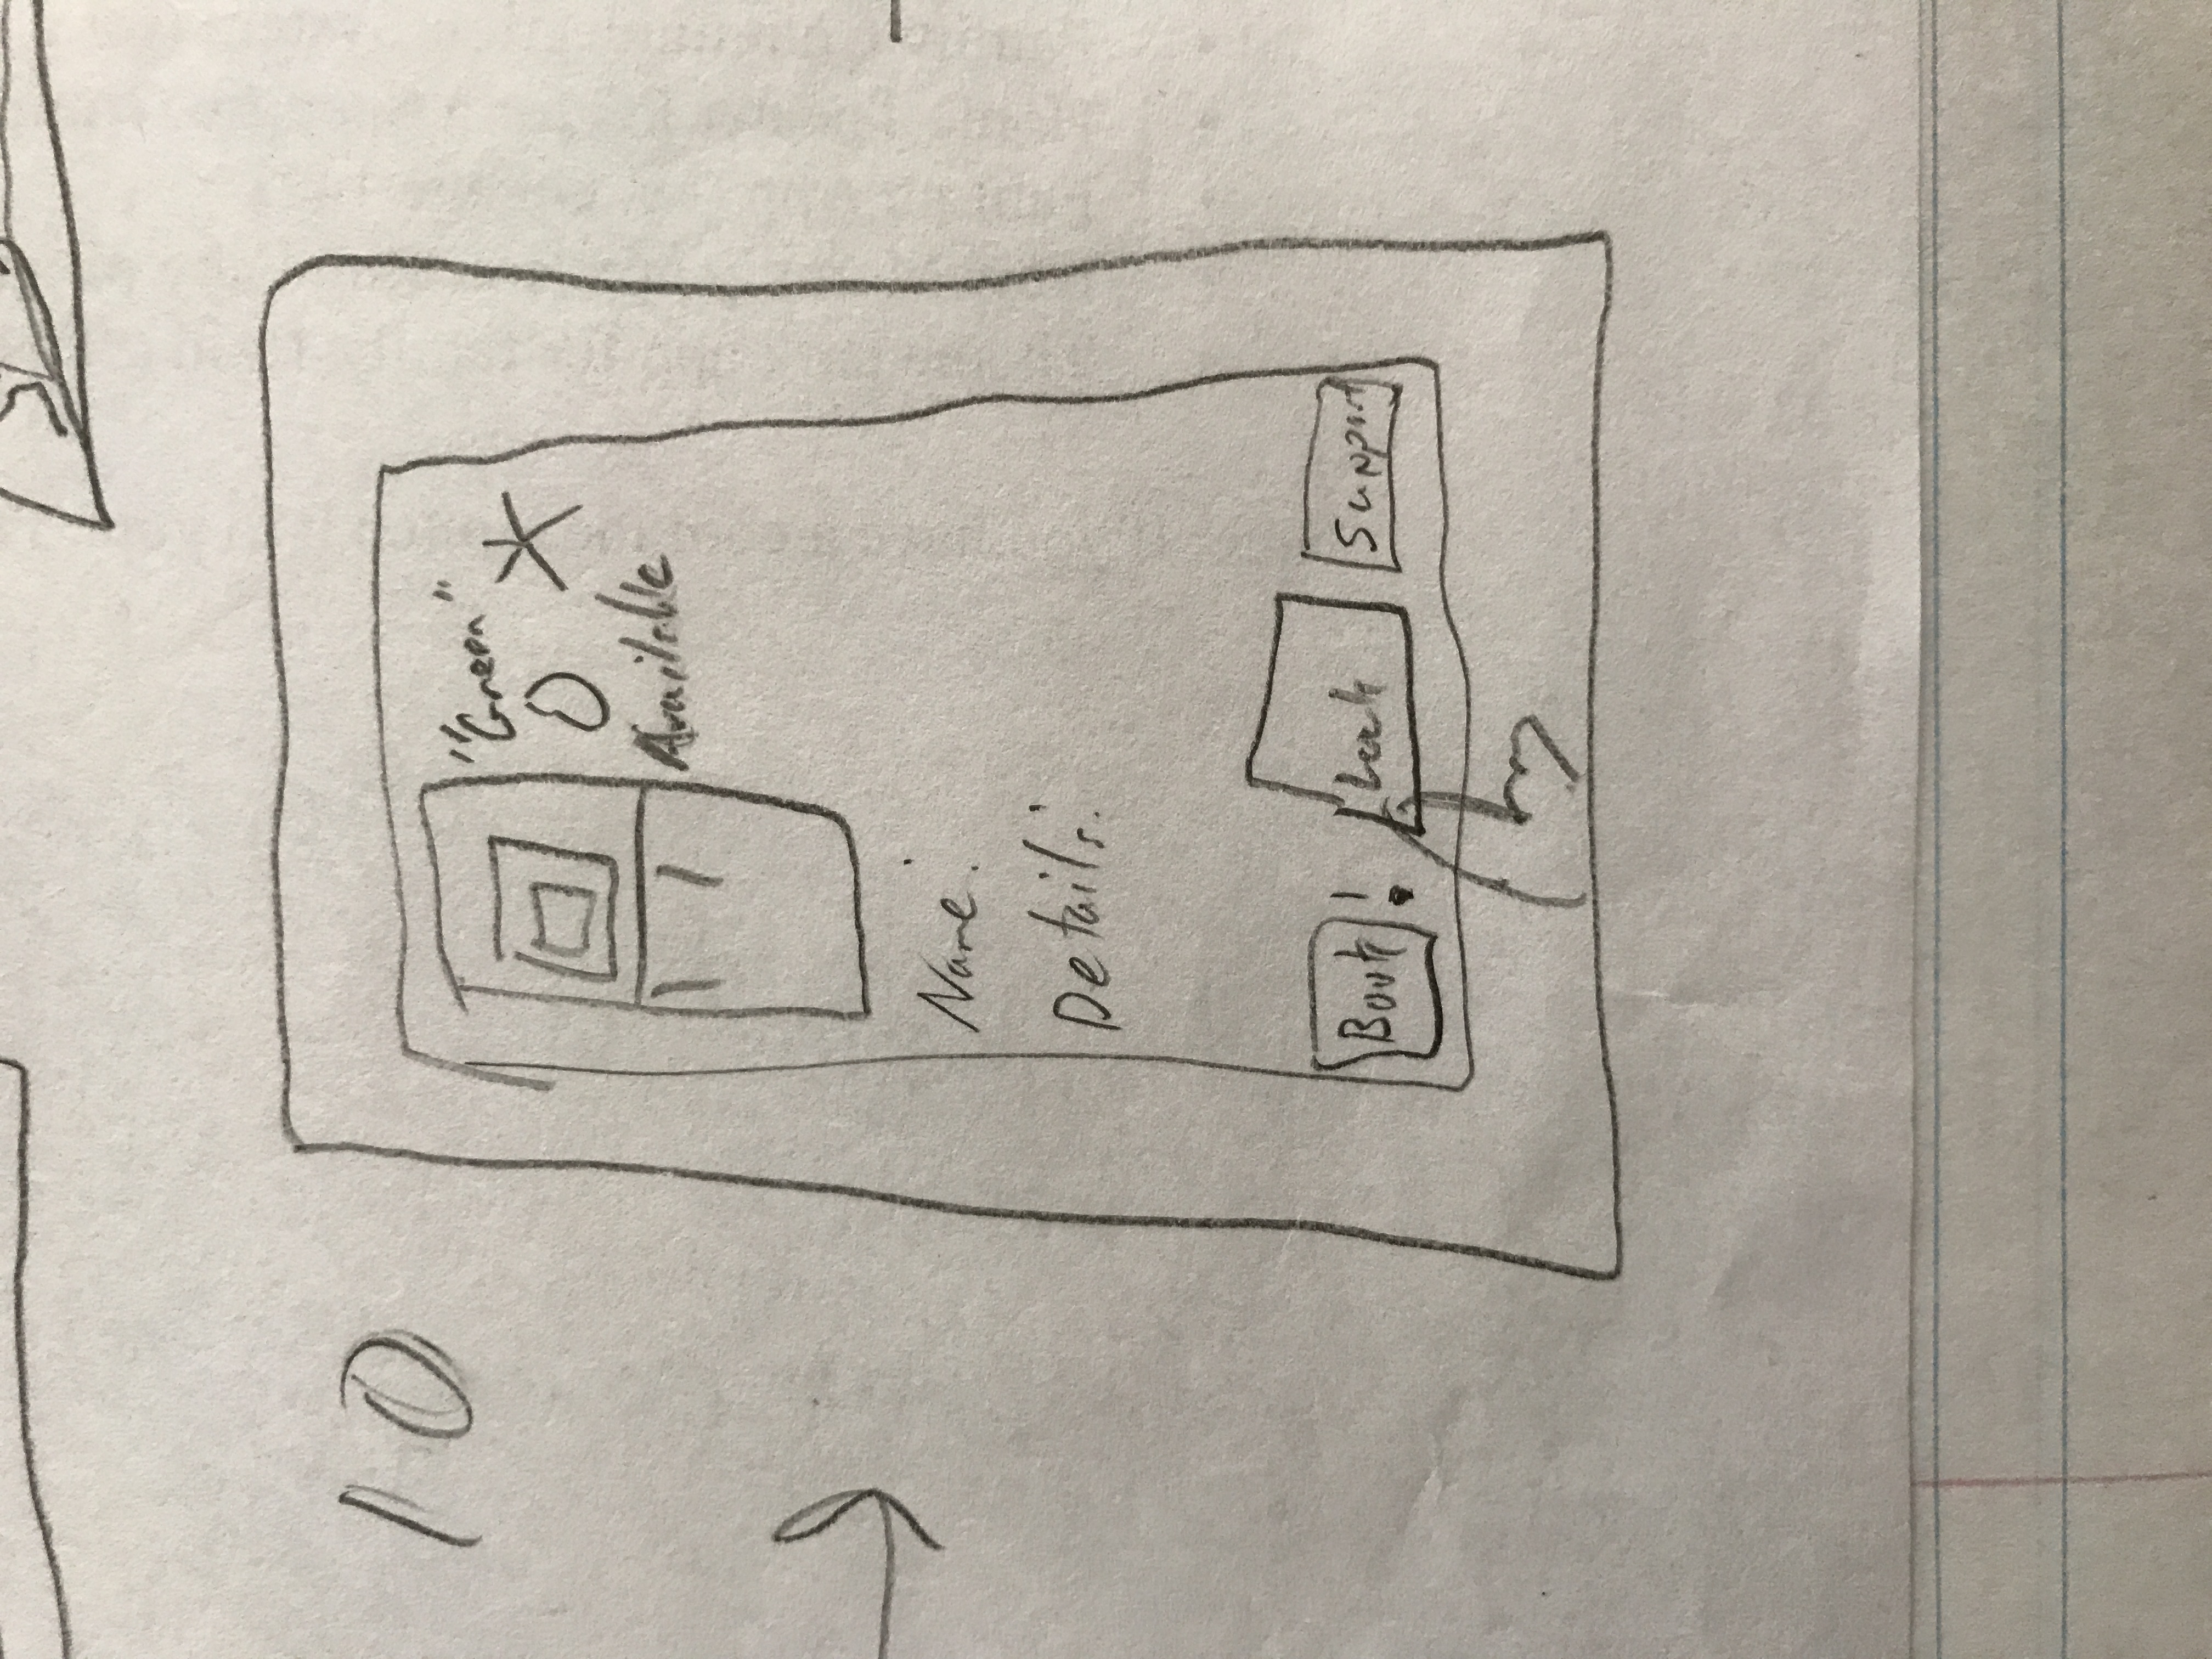 10
"Green"
Available
Name:
Details:
Book ! Lock Support